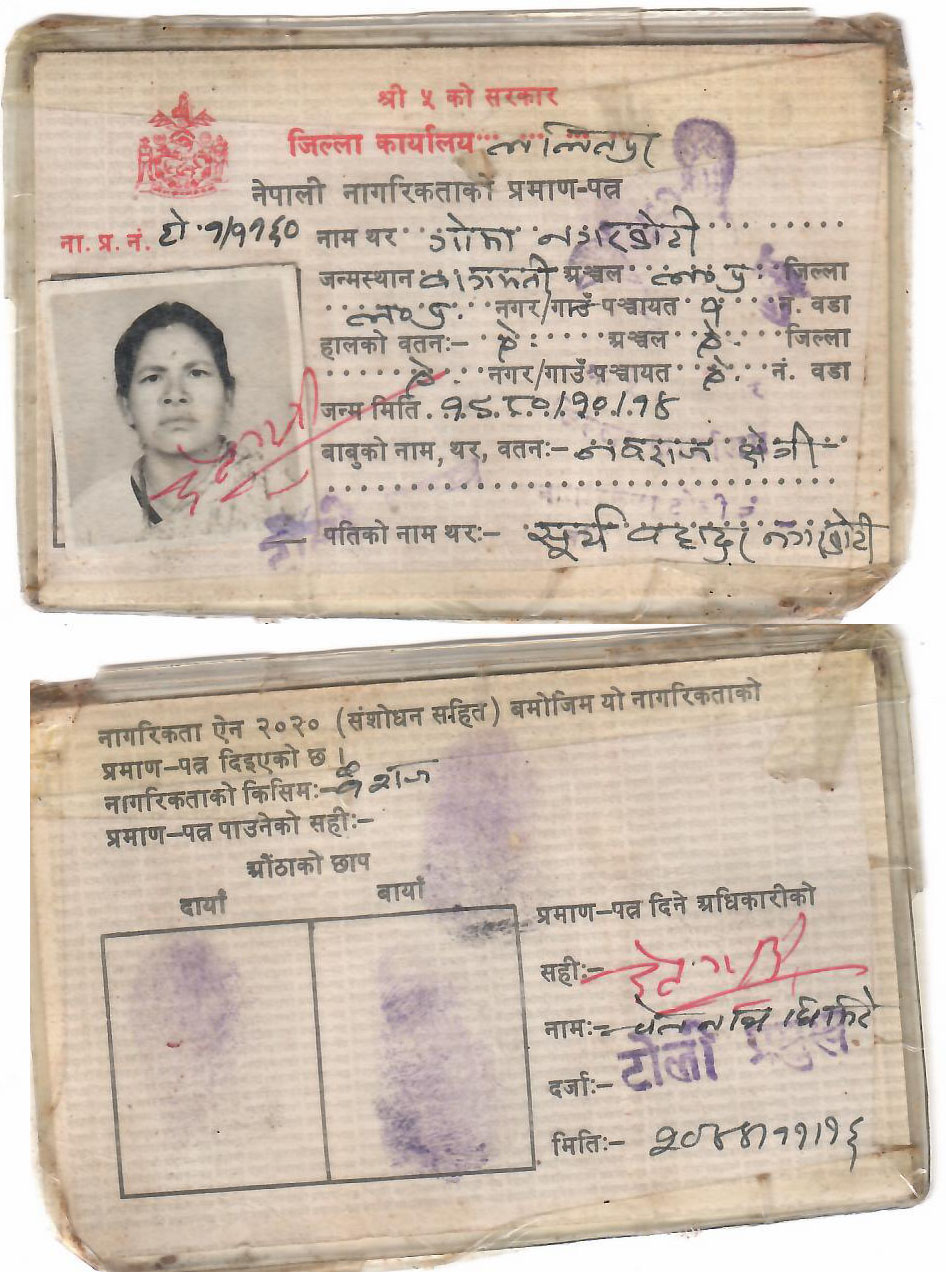 श्री ५ को सरकार
जिल्ला कार्यालय ललितपुर
नेपाली नागरिकताको प्रमाण-पत्र
ना. प्र. नं. टो १/११६०
नाम थर गोमा नगरकोटी
जन्मस्थान बागमती अञ्चल ल.पु. जिल्ला
ल.पु. नगर/गाउँ पञ्चायत नं. वडा
हालको वतन:- ऐ अञ्चल ऐ जिल्ला
ऐ नगर/गाउँ पञ्चायत ऐ नं. वडा
जन्म मिति
बाबुको नाम, थर, वतन:- नवराज क्षेत्री
पतिको नाम थर:- सूर्य बहादुर नगरकोटी
नागरिकता ऐन २०२० (संशोधन सहित) बमोजिम यो नागरिकताको
प्रमाण-पत्र दिइएको छ ।
नागरिकताको किसिम:- वंशज
प्रमाण-पत्र पाउनेको सही:-
औंठाको छाप
दायाँ बायाँ
प्रमाण-पत्र दिने अधिकारीको
सही:-
नाम:-
दर्जा:- टोली प्रमुख
मिति:- २०४४।११।१६